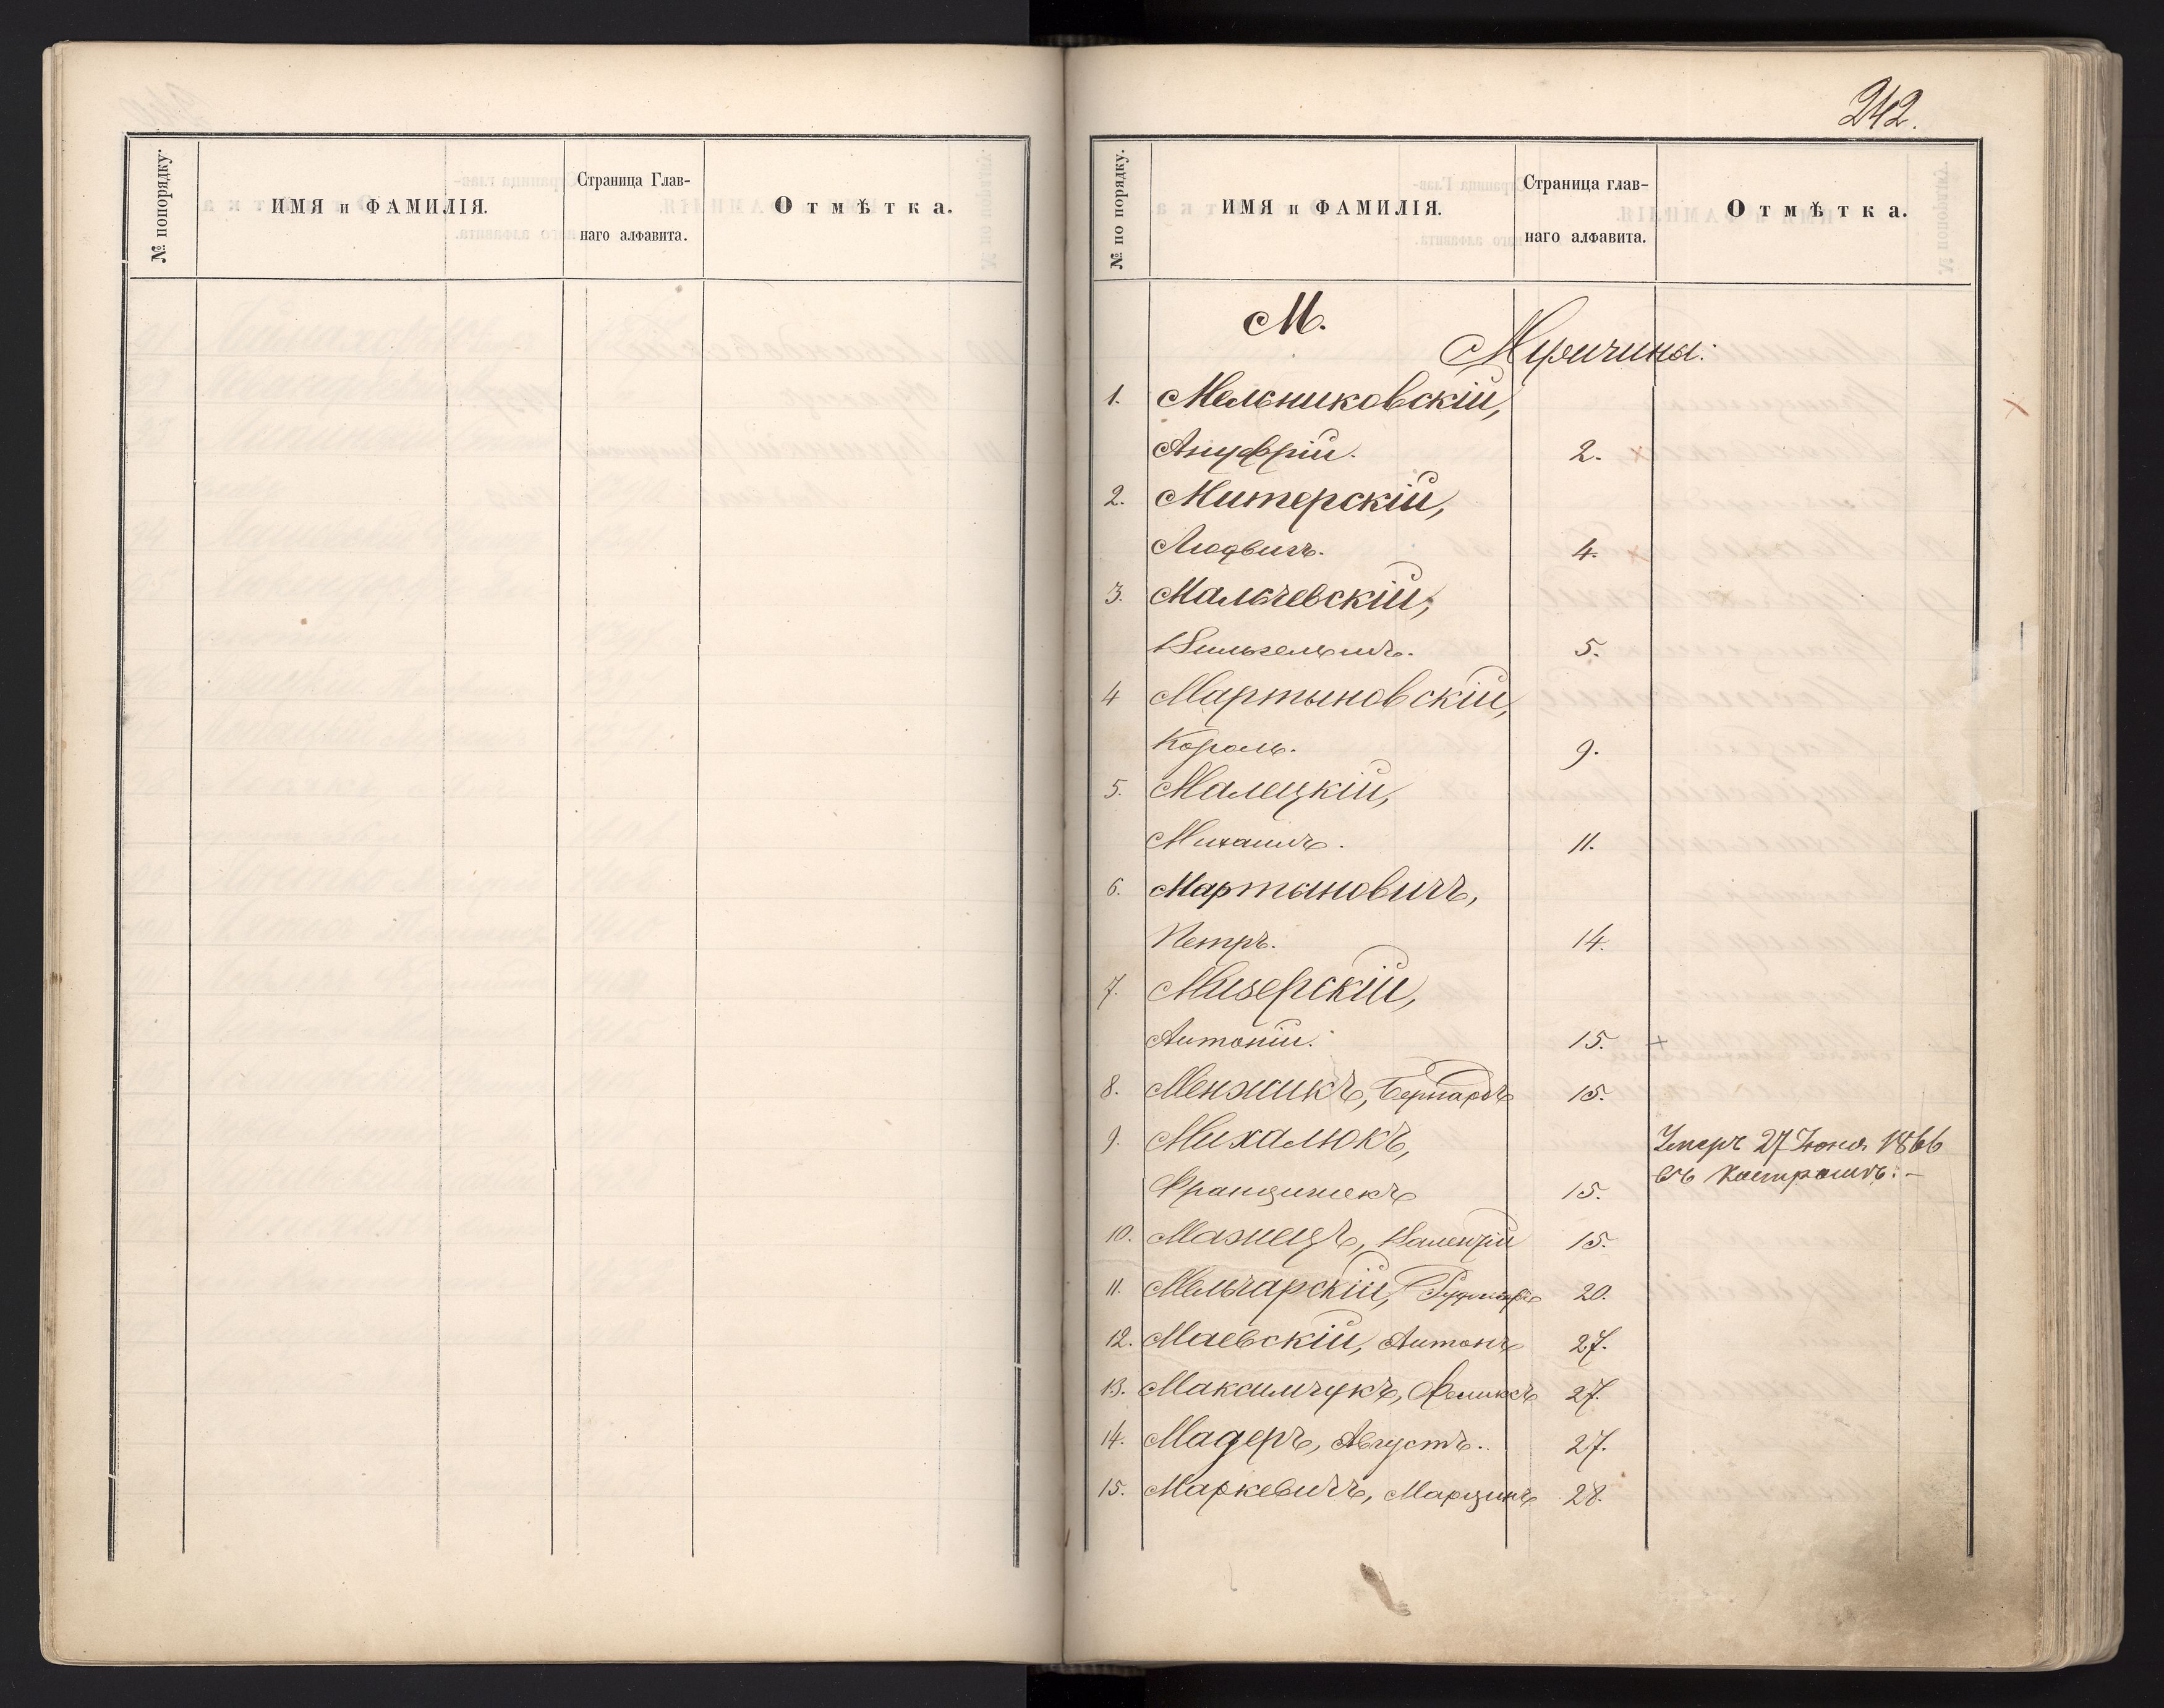 № попорядку.
ИМЯ и ФАМИЛІЯ.
Страница Глав-
наго алфавита.
Отмѣтка.
242.
№ по порядку.
ИМЯ и ФАМИЛІЯ.
Страница глав-
наго алфавита.
Отмѣтка.
М.
Мужчины:
1. Мельниковскій,
Ануфрій. 2.
2. Митерскій,
Людвигъ. 4.
3. Мальчевскій,
Вильгельмъ. 5.
4 Мартыновскій,
Кароль. 9.
5. Малецкій,
Михаилъ. 11.
6. Мартыновичъ,
Петръ. 14.
7. Мизерскій,
Антоній. 15. +
8. Менжикъ, Бернардъ 15.
9. Михалюкъ, Умеръ 27 Іюня 1866
Францишекъ 15.
10. Мазнецъ, Валентій 15.
11. Мельчарскій, 20.
12. Маевскій, Антонъ 27.
13. Максимчукъ, Феликсъ 27.
14. Мадеръ, Августъ. 27.
15. Маркевичъ, Марцинъ 28.